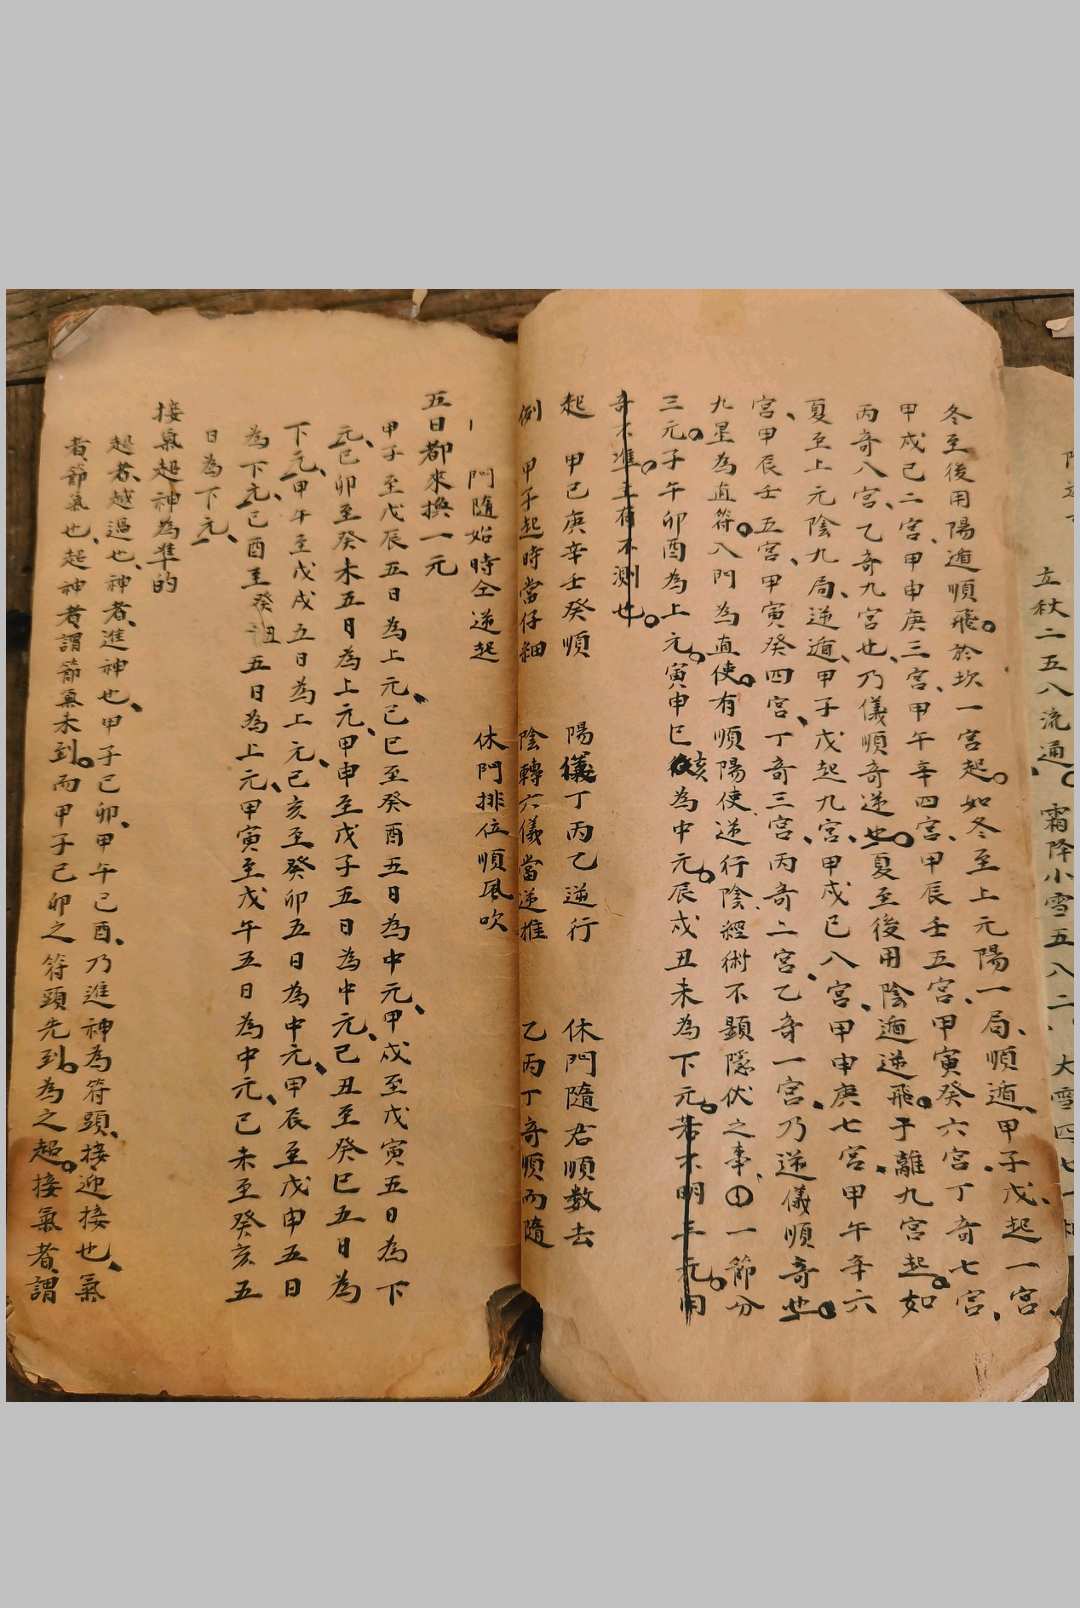 立秋二五八流通 霜降小雪五八二 大雪四七一相
冬至後用陽遁順飛於坎一宮起如冬至上元陽一局順遁甲子戊起一宮
甲戌己二宮甲申庚三宮甲午辛四宮甲辰壬五宮甲寅癸六宮丁奇七宮
丙奇八宮乙奇九宮也乃儀順奇逆也夏至後用陰遁逆飛于離九宮起如
夏至上元陰九局逆遁甲子戊起九宮甲戌己八宮甲申庚七宮甲午辛六
宮甲辰壬五宮甲寅癸四宮丁奇三宮丙奇二宮乙奇一宮乃逆儀順奇也
九星為直符八門為直使有順陽使逆行陰經術不顯隱伏之事一節分
三元子午卯酉為上元寅申巳亥為中元辰戌丑未為下元若不明三元用
奇不准主有不測也
起 甲己庚辛壬癸順 陽儀丁丙乙逆行 休門隨君順數去
例 甲子起時當仔細 陰轉六儀當逆推 乙丙丁奇順而隨
門隨始時仝逆起 休門排位順風吹
五日都來換一元
甲子至戊辰五日為上元己巳至癸酉五日為中元甲戌至戊寅五日為下
元己卯至癸未五日為上元甲申至戊子五日為中元己丑至癸巳五日為
下元甲午至戊戌五日為上元己亥至癸卯五日為中元甲辰至戊申五日
為下元己酉至癸丑五日為上元甲寅至戊午五日為中元己未至癸亥五
日為下元
接氣超神為準的
超者越過也神者進神也甲子己卯甲午己酉乃進神為符頭接迎接也氣
者節氣也超神者謂節氣未到而甲子己卯之符頭先到為之超接氣者謂